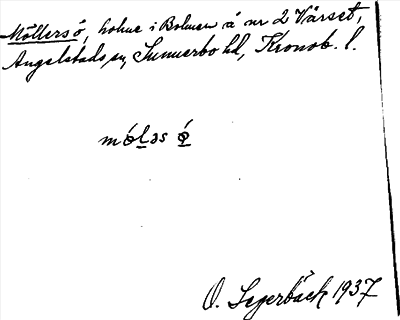 Möllersö, holme i Bolmen å nr 2 Vårset,
Angelstads sn, Sunnerbo hd, Kronob. l.
mö́las ö̀
O. Segerbäck 1937